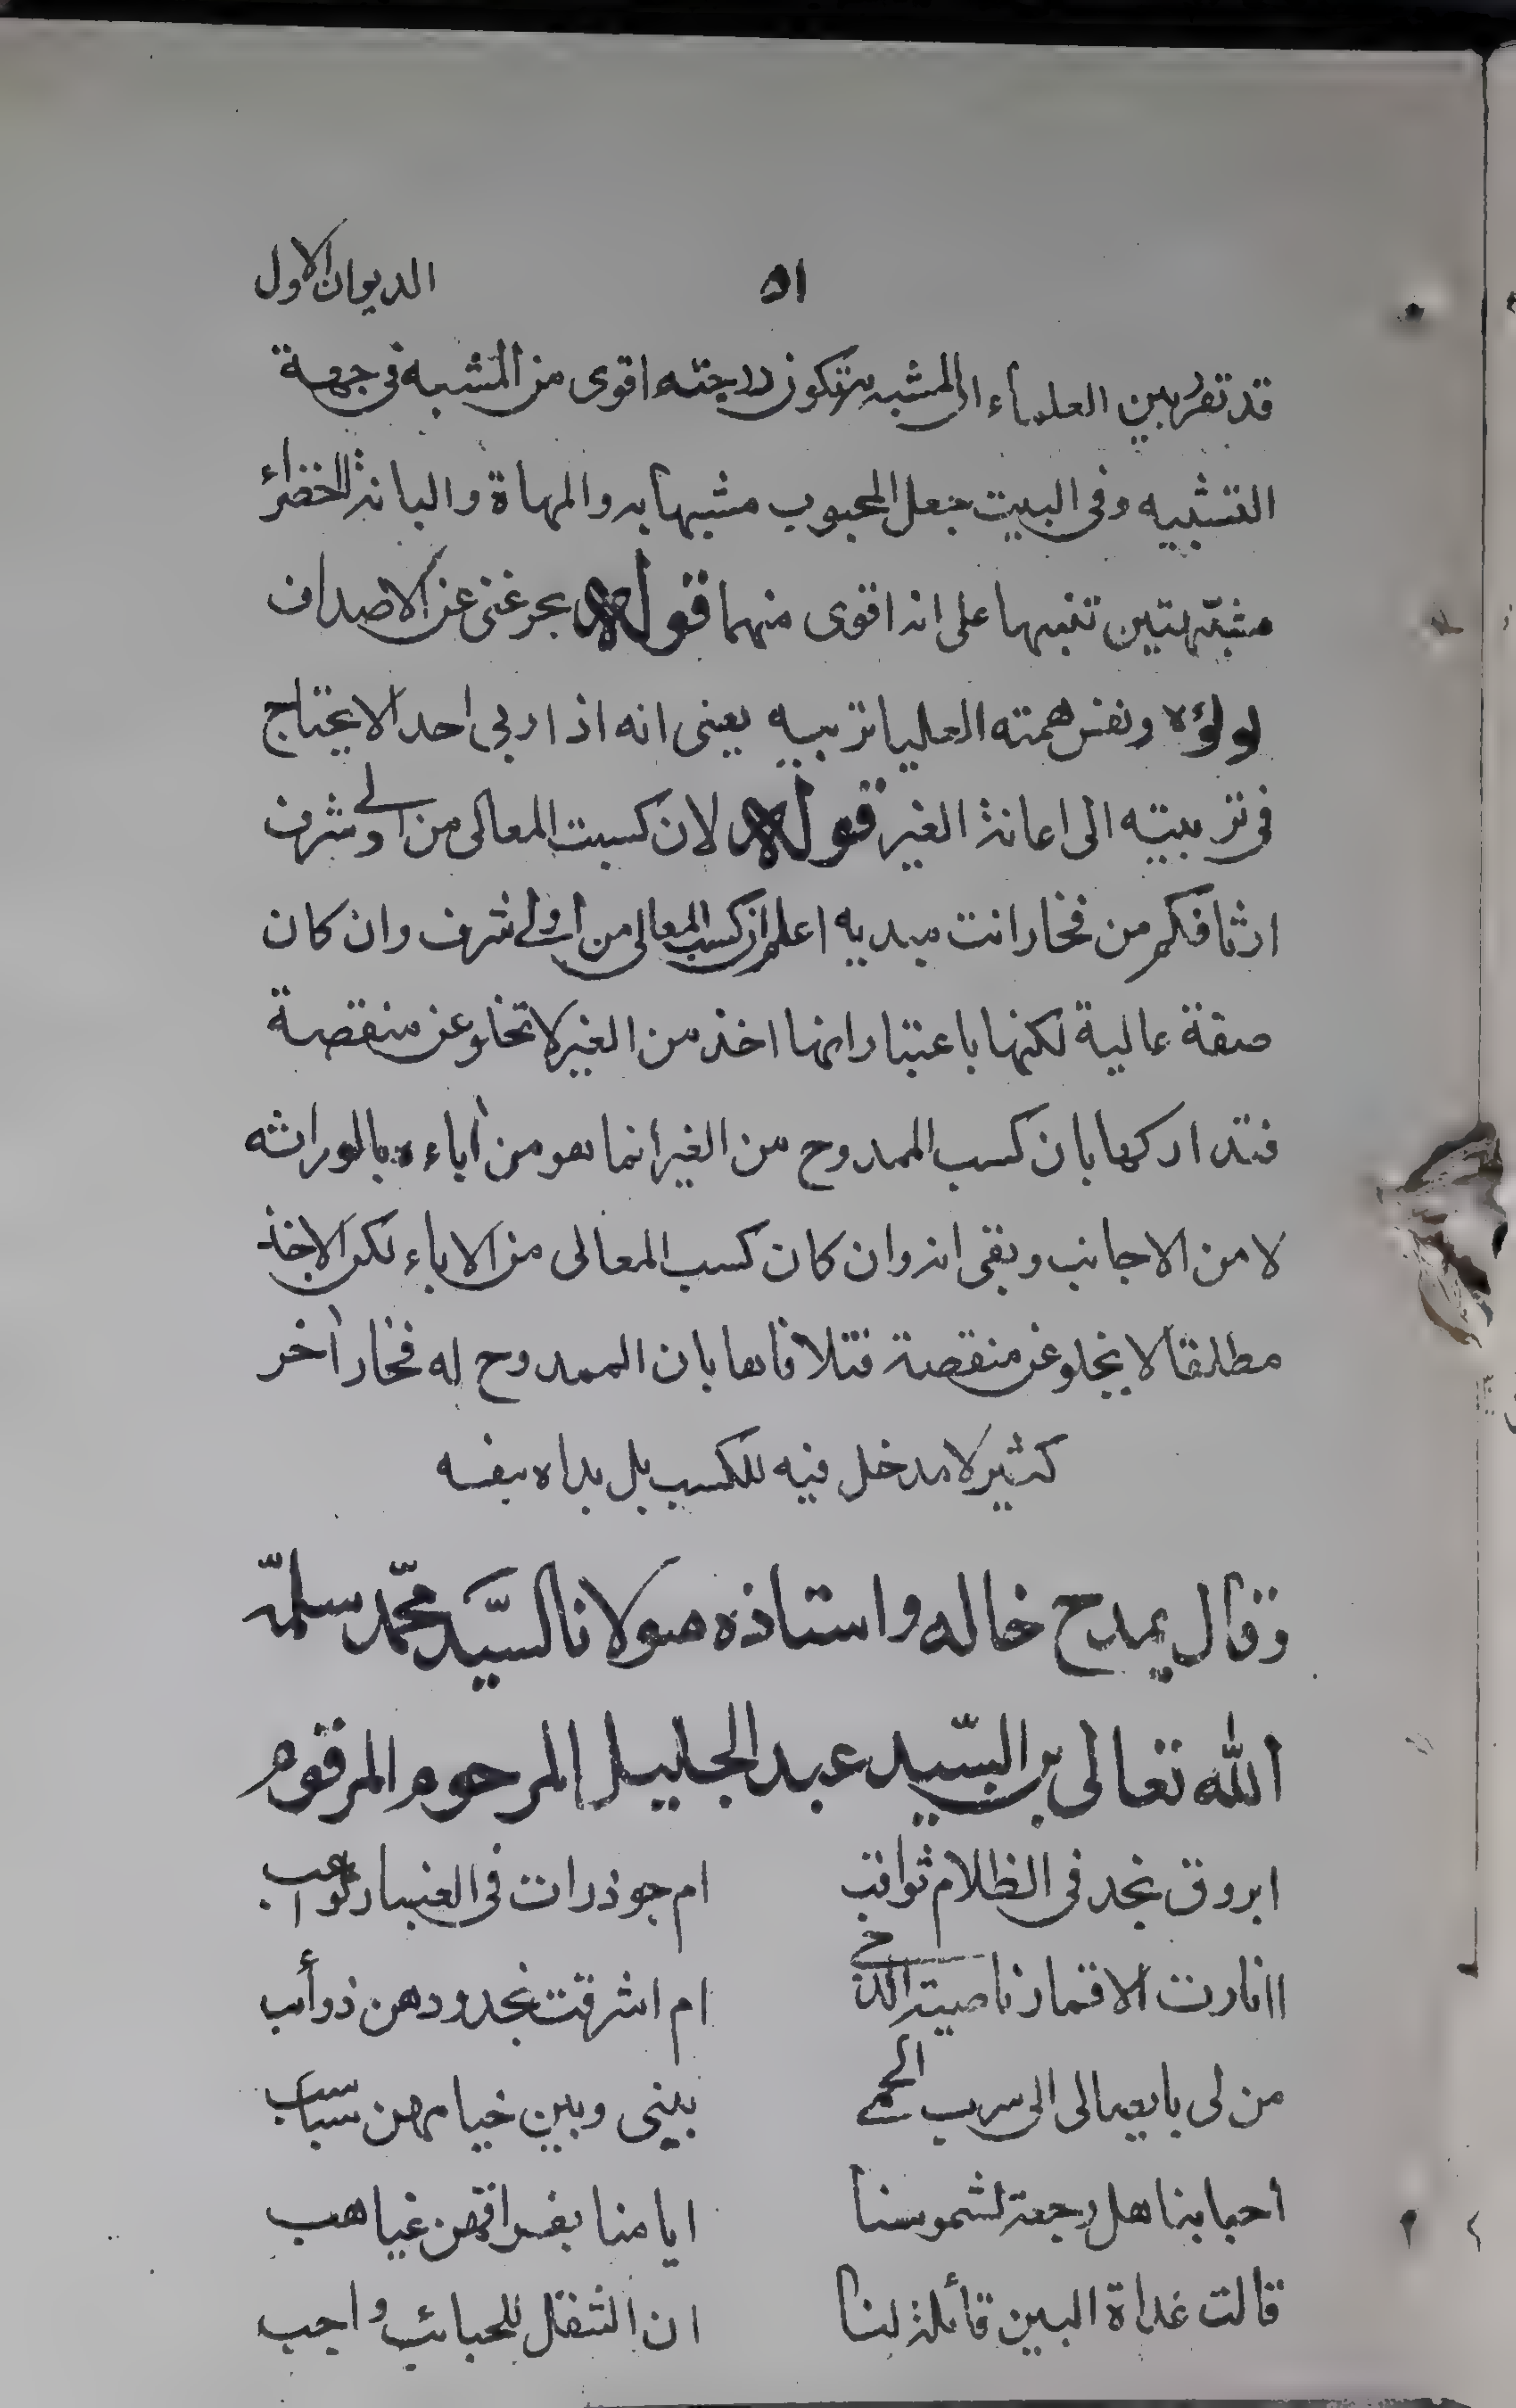 الديوان الاول
٥١
قد تقرر بين العلماء ان المشبه به تكون درجته اقوى من المشبه في جهة
التشبيه وفى البيت جعل المحبوب مشبها به والمهاة والبانة الخضراء
مشبّهتين تنبيها على انه اقوى منهما قوله بحر غنى عن الاصداف
لولؤه ونفس همته العليا تربيه يعنى انه اذا ربى احدا لا يحتاج
فى تربيته الى اعانة الغير قوله لان كسبت المعالى من اولى شرف
ارثا فكم من فخار انت مبديه اعلم ان كسب المعالى من اولى شرف وان كان
صفة عالية لكنها باعتبار انها اخذ من الغير لا تخلو عن منقصة
فتداركها بان كسب الممدوح من الغير انما هو من اباءه بالوراثه
لا من الاجانب وبقى انه وان كان كسب المعالى من الاباء لكن الاخذ
مطلقا لا يخلو عن منقصة فتلافاها بان الممدوح له فخار أخر
كثير لا مدخل فيه للكسب بل بداه بنفسه
وقال يمدح خاله واستاذه مولانا السيّد محمّد سلمّه
الله تعالى بن السّيد عبد الجليل المرحوم المرقوم
ابروق نجد فى الظلام ثواقب ام جوذرات فى الغبار كواعب
اانارت الاقمار ناصية الدخى ام اشرقت بخدودهن ذوأىب
من لى بايصالى الى سرب الحمى بينى وبين خيامهن سباسب
احبابنا هل رجعة لشموسنا ايامنا بفراقهن غياهب
قالت غداة البين قأىلة لنا ان التنقل للحبائب واجب